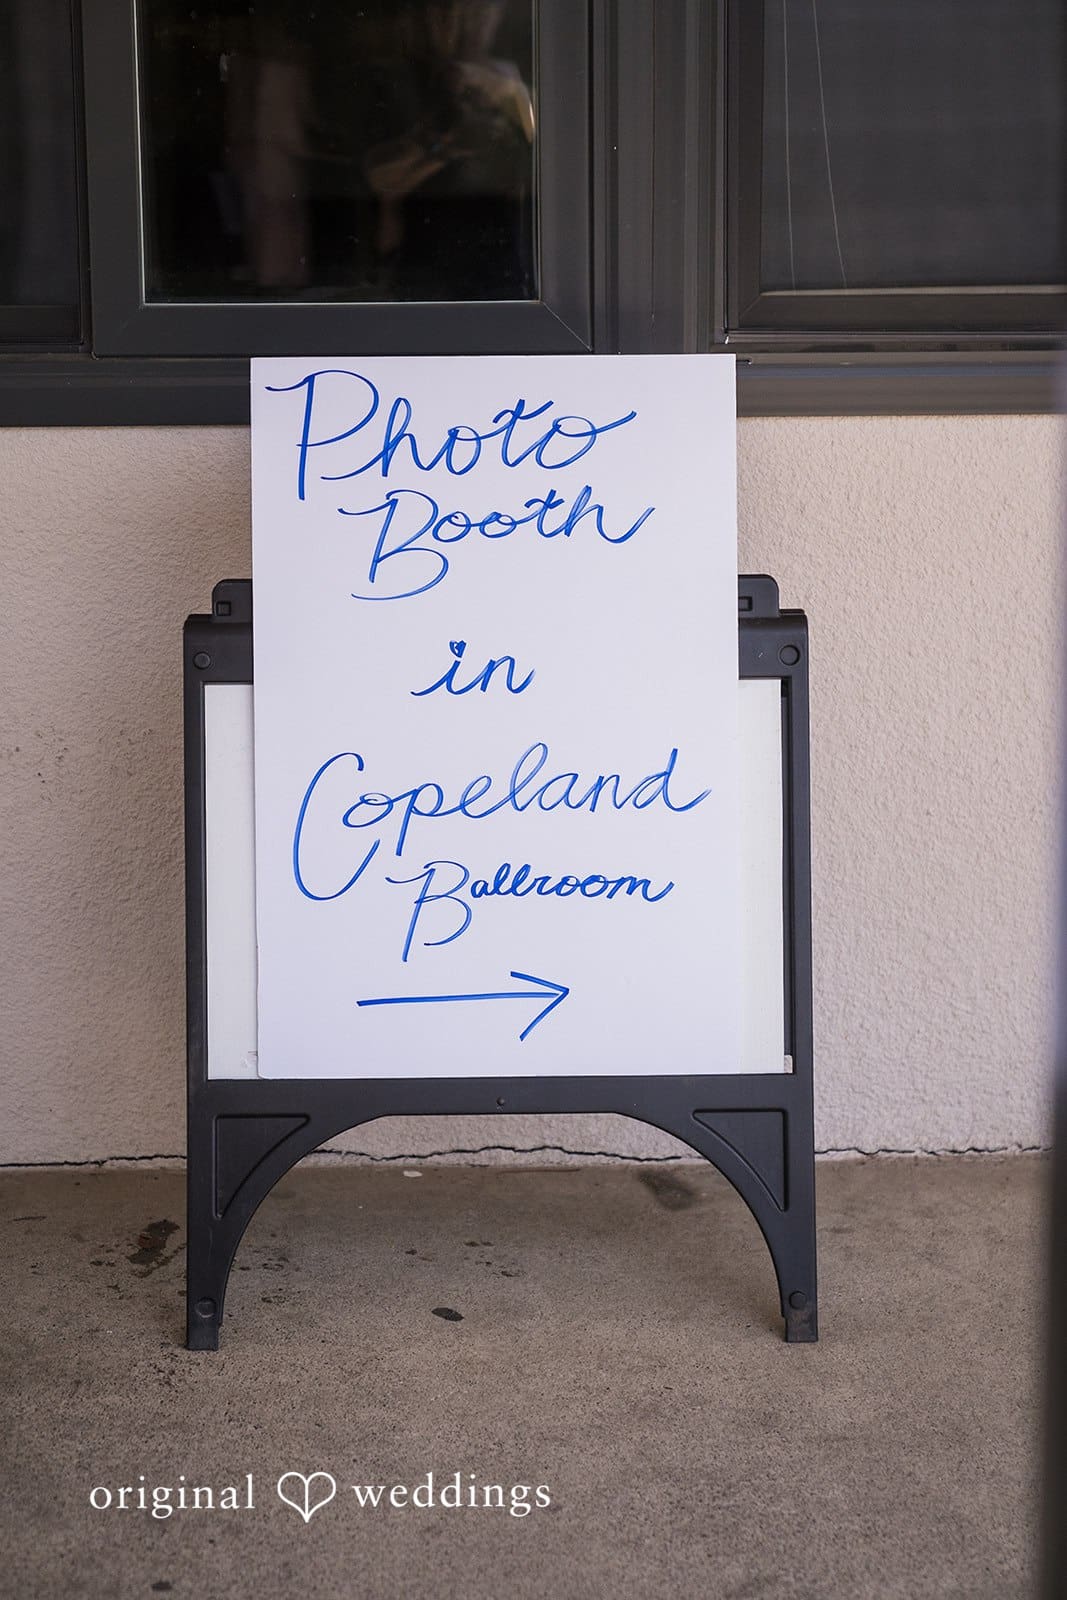 Photo
Booth
in
Copeland
Ballroom
original weddings